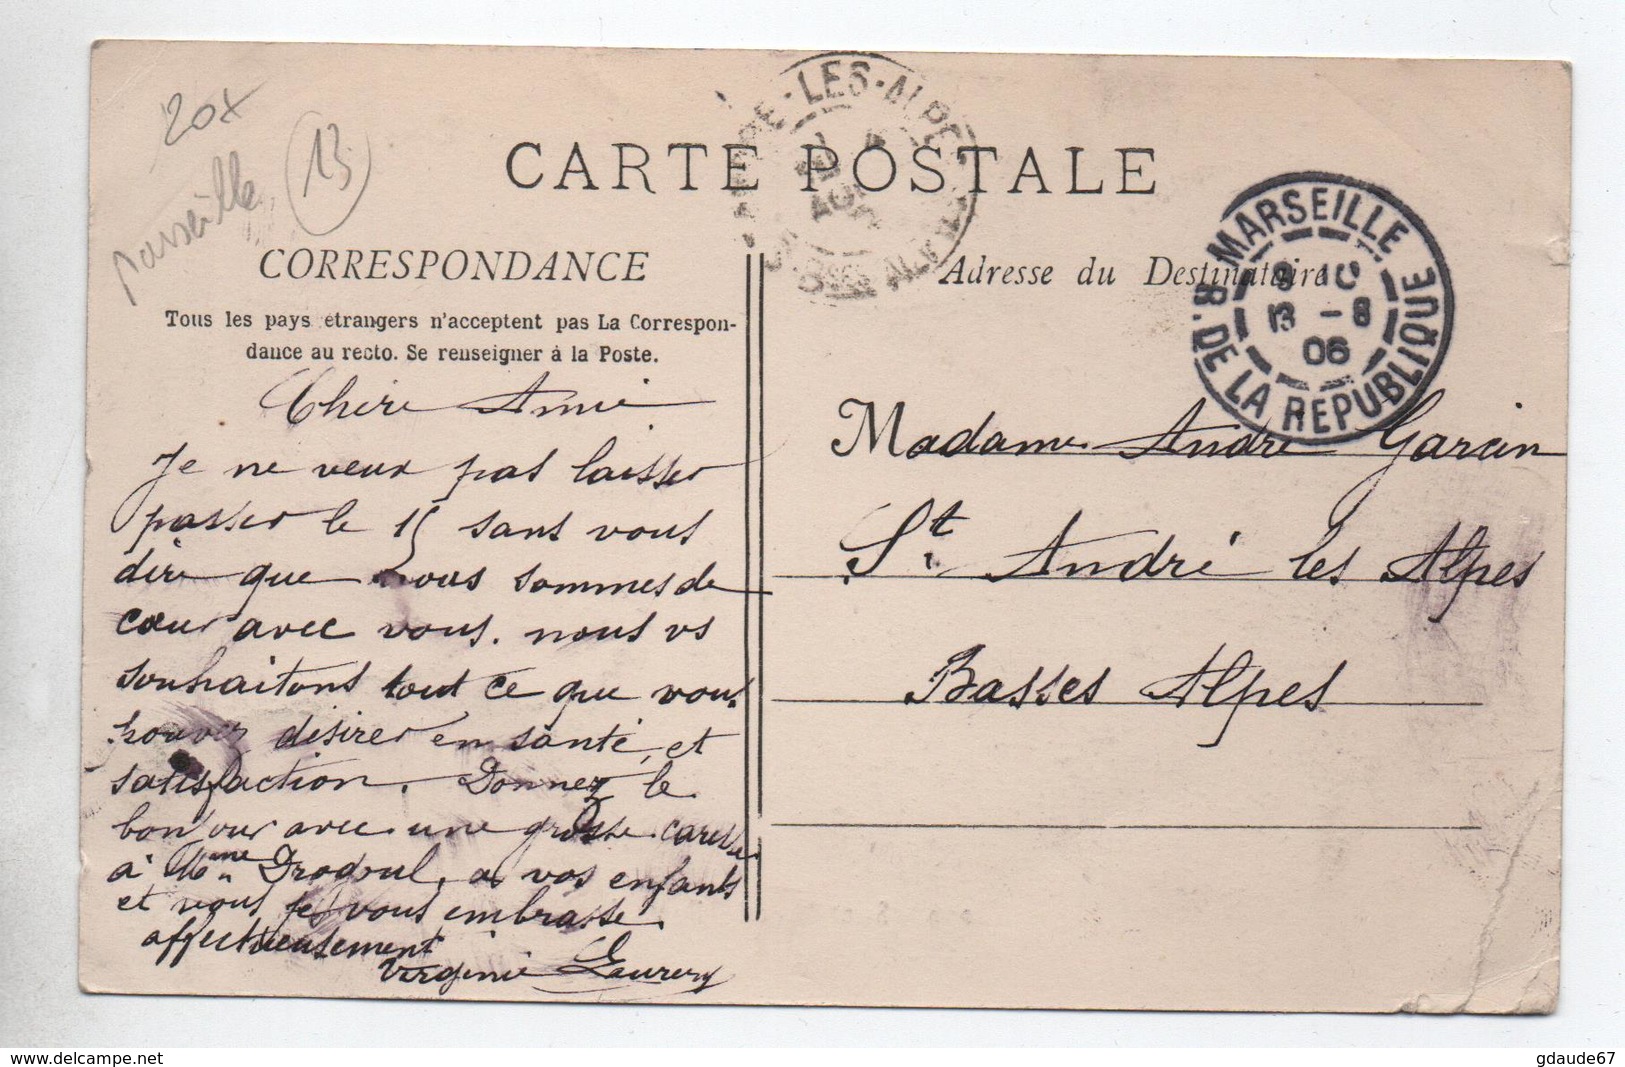 20x
marseille
13
CARTE POSTALE
CORRESPONDANCE
Tous les pays étrangers n'acceptent pas La Correspon-
dance au recto. Se renseigner à la Poste.
Adresse du Destinataire
MARSEILLE
R. DE LA REPUBLIQUE
13 - 8
06
LES-ALPE
Chère Amie
Je ne veux pas laisser
passer le 15 sans vous
dire que nous sommes de
cœur avec vous. nous vs
souhaitons tout ce que vous
pouvez désirer en santé, et
satisfaction. Donnez le
bonjour avec une grosse caresse
à Mme Drogoul, a vos enfants
et vous je vous embrasse
affectueusement
Virginie
Madame André Garcin
St. André les Alpes
Basses Alpes
gdaude67